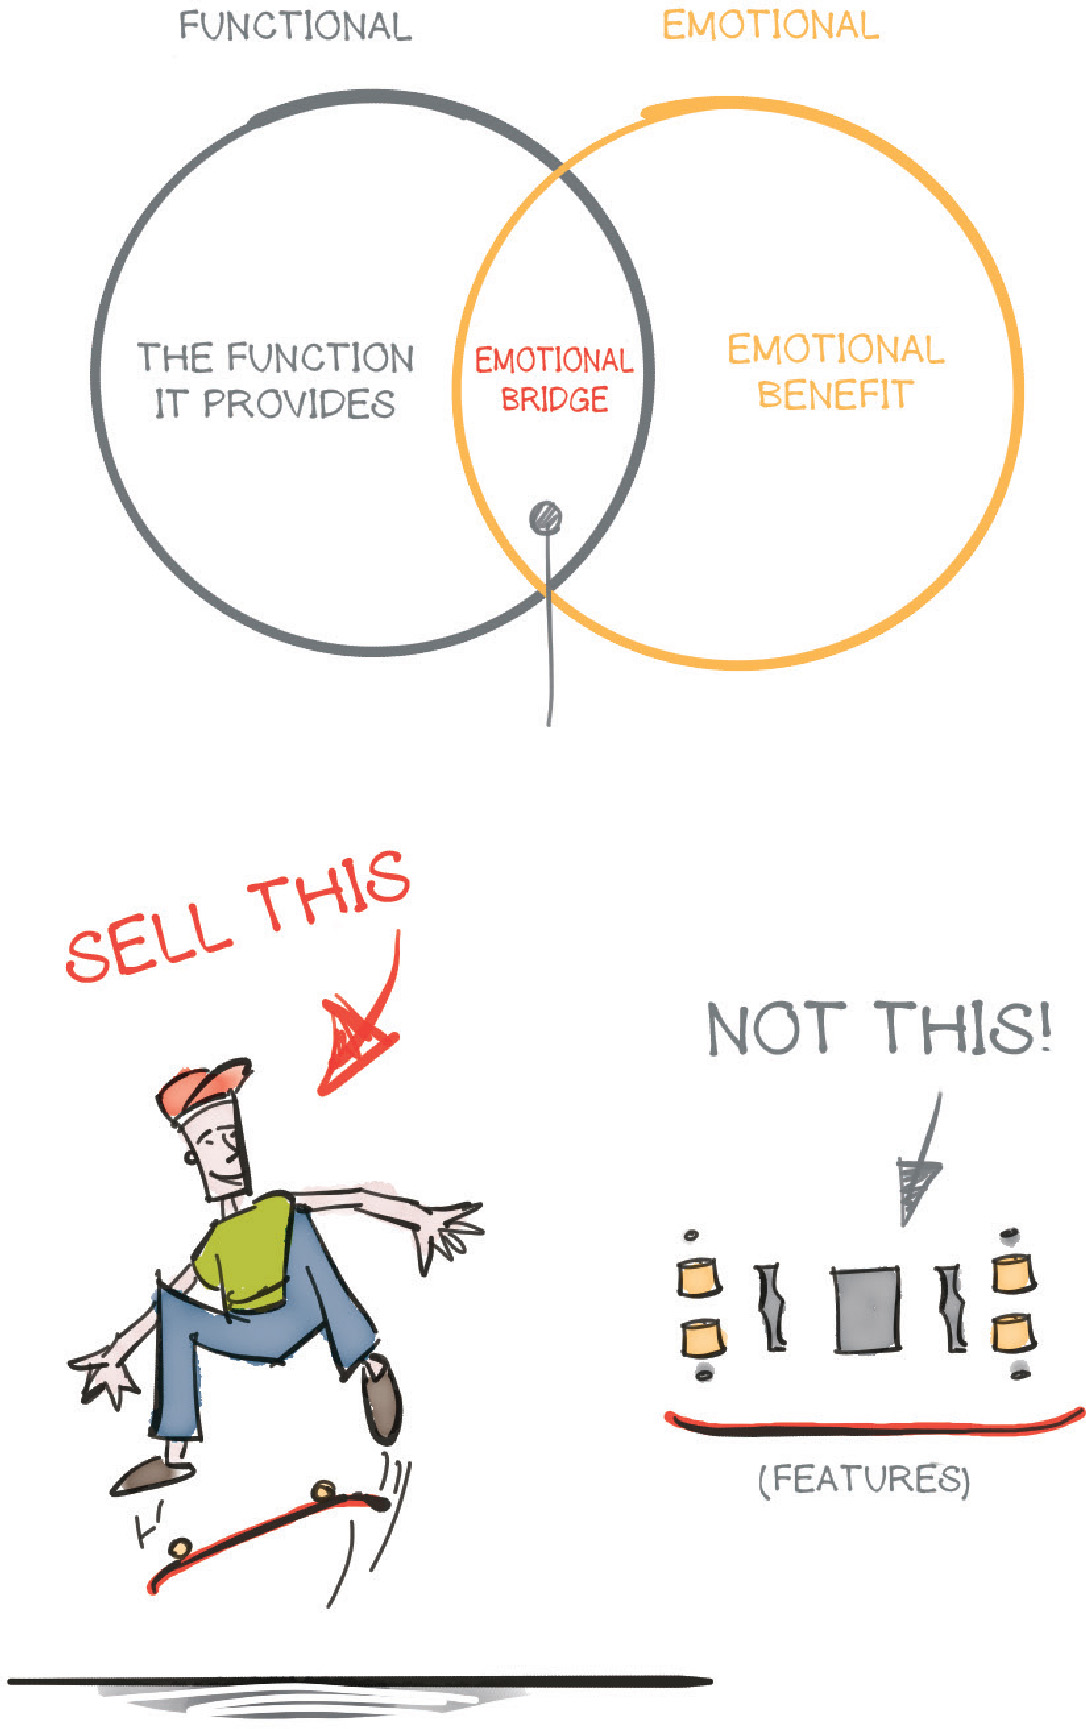 FUNCTIONAL
EMOTIONAL
THE FUNCTION
IT PROVIDES
EMOTIONAL
BRIDGE
EMOTIONAL
BENEFIT
SELL THIS
NOT THIS!
(FEATURES)